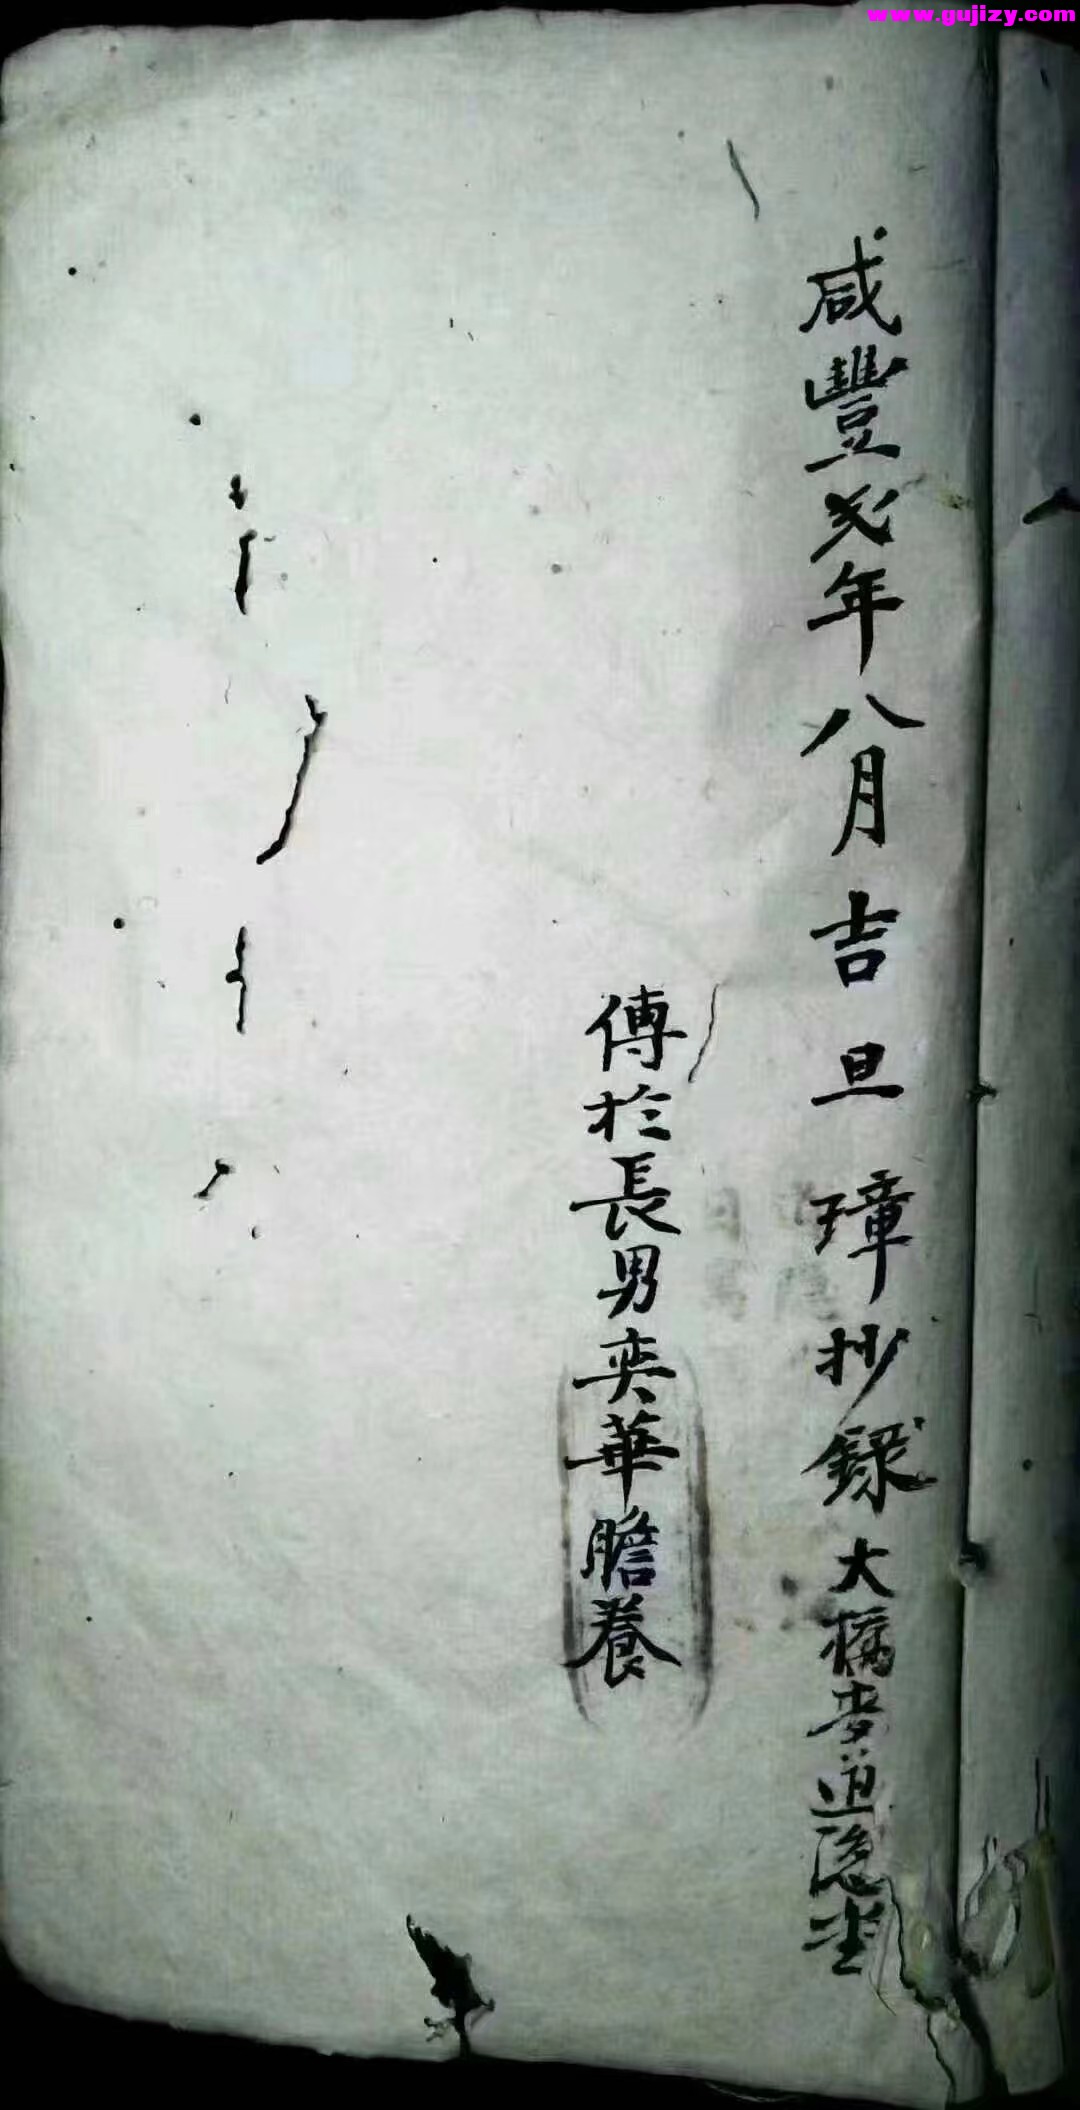 www.gujizy.com
咸豐弍年八月吉旦璋抄錄大橋李道隐堂
傳於長男奕華膽養